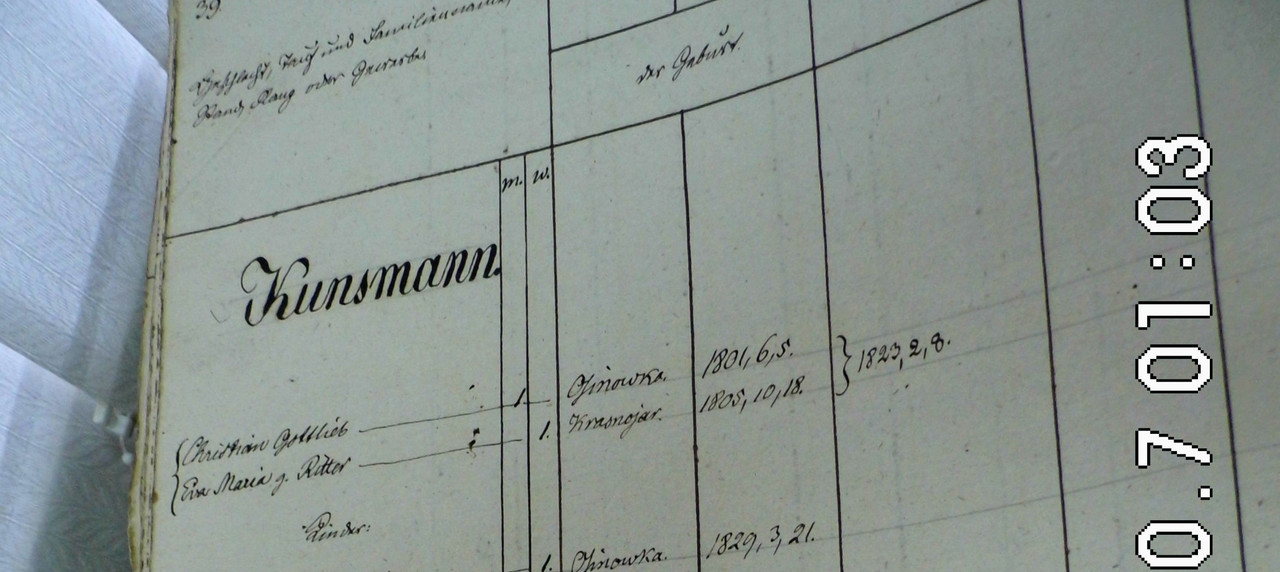 39.
Geschlecht, Tauf und Familienname,
Stand, Rang oder Gewerbe.
der Geburt.
m. w.
Kunsmann.
Christian Gottlieb 1. 1801, 6, 5. } 1823, 2, 8.
Eva Maria g. Ritter 1. Krasnojar. 1805, 10, 18.
Kinder:
1. 1829, 3, 21.
0.7 01:03